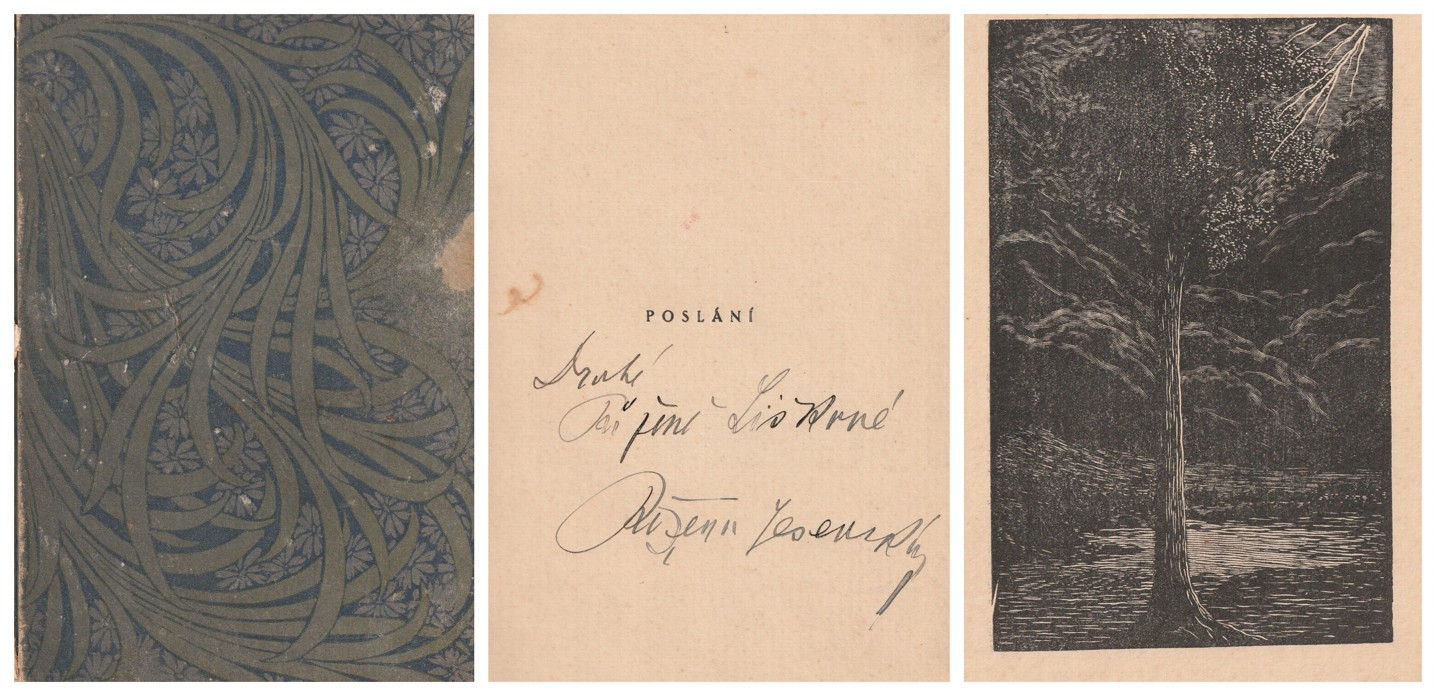 POSLÁNÍ
Drahé
Růženě Liškové
Růžena Jesenská